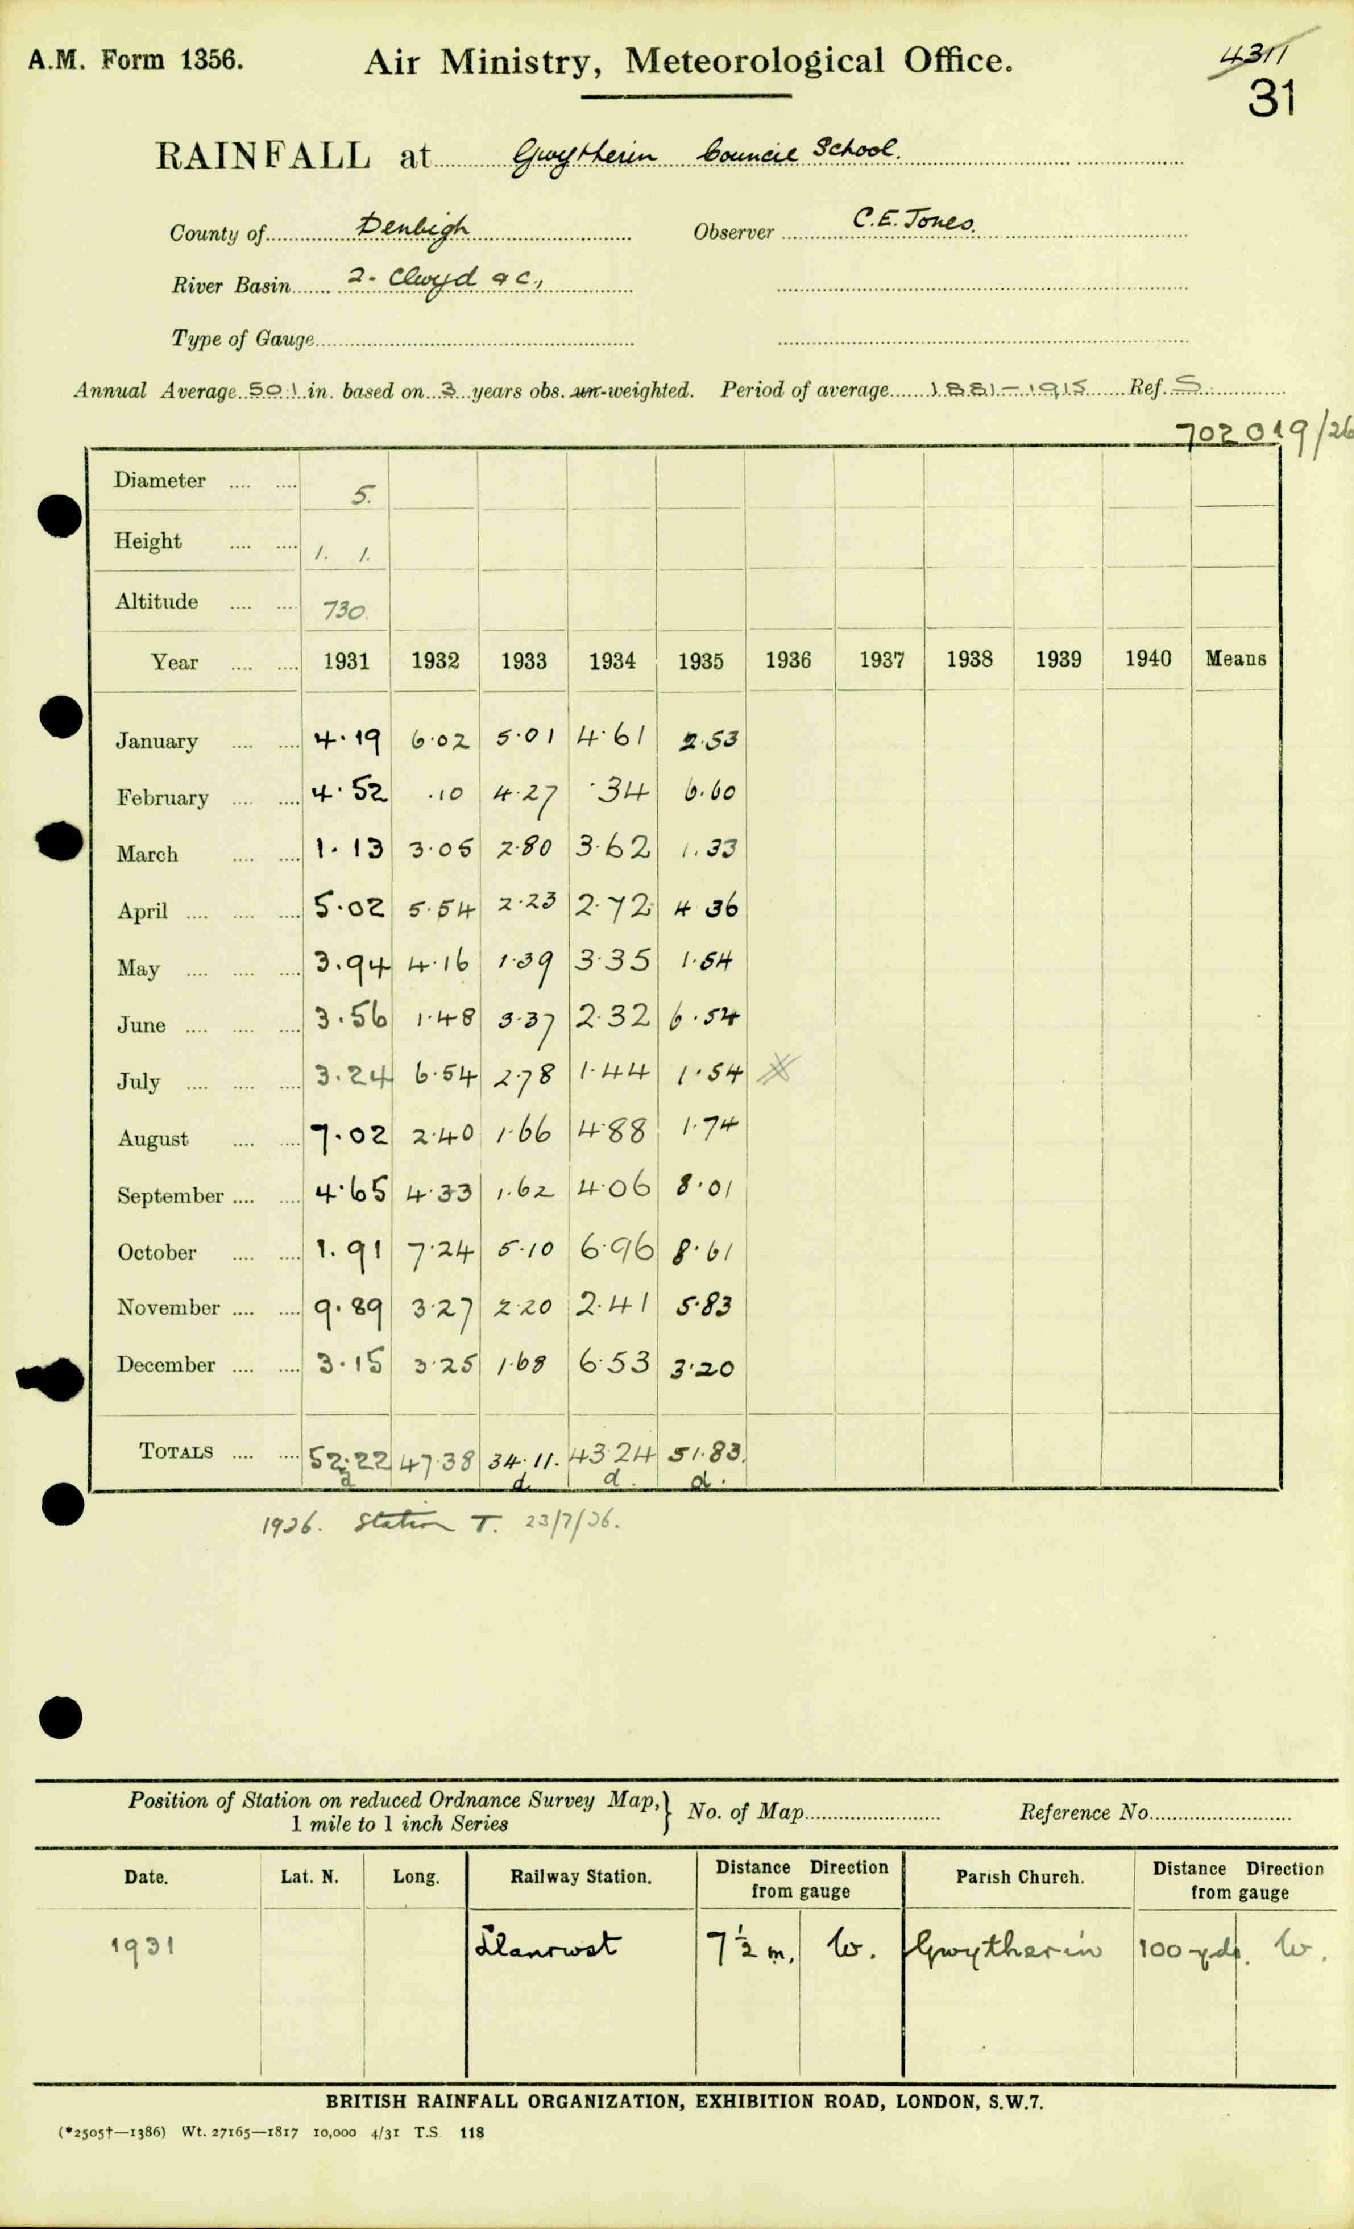 A.M. Form 1356. Air Ministry, Meteorological Office. 4311
31
RAINFALL at Gwytherin Council School.
County of Denbigh Observer C.E. Jones.
River Basin 2. Clwyd & C,
Type of Gauge
Annual Average 50.1 in. based on 3 years obs. un-weighted. Period of average 1881-1915 Ref. S.
702019/26
Diameter 5.
Height 1. 1.
Altitude 730
Year 1931 1932 1933 1934 1935 1936 1937 1938 1939 1940 Means
January 4.19 6.02 5.01 4.61 2.53
February 4.52 .10 4.27 .34 6.60
March 1.13 3.05 2.80 3.62 1.33
April 5.02 5.54 2.23 2.72 4.36
May 3.94 4.16 1.39 3.35 1.54
June 3.56 1.48 3.37 2.32 6.54
July 3.24 6.54 2.78 1.44 1.54
August 7.02 2.40 1.66 4.88 1.74
September 4.65 4.33 1.62 4.06 8.01
October 1.91 7.24 5.10 6.96 8.61
November 9.89 3.27 2.20 2.41 5.83
December 3.15 3.25 1.68 6.53 3.20
TOTALS 52.22 47.38 34.11. 43.24 51.83.
d d. d. d.
1936. Station T. 23/7/36.
Position of Station on reduced Ordnance Survey Map,} No. of Map Reference No.
1 mile to 1 inch Series
Date. Lat. N. Long. Railway Station. Distance Direction from gauge Parish Church. Distance Direction from gauge
1931 Llanrwst 7½ m. W. Gwytherin 100 yds. W.
BRITISH RAINFALL ORGANIZATION, EXHIBITION ROAD, LONDON, S.W.7.
(*2505†—1386) Wt. 27165—1817 10,000 4/31 T.S. 118